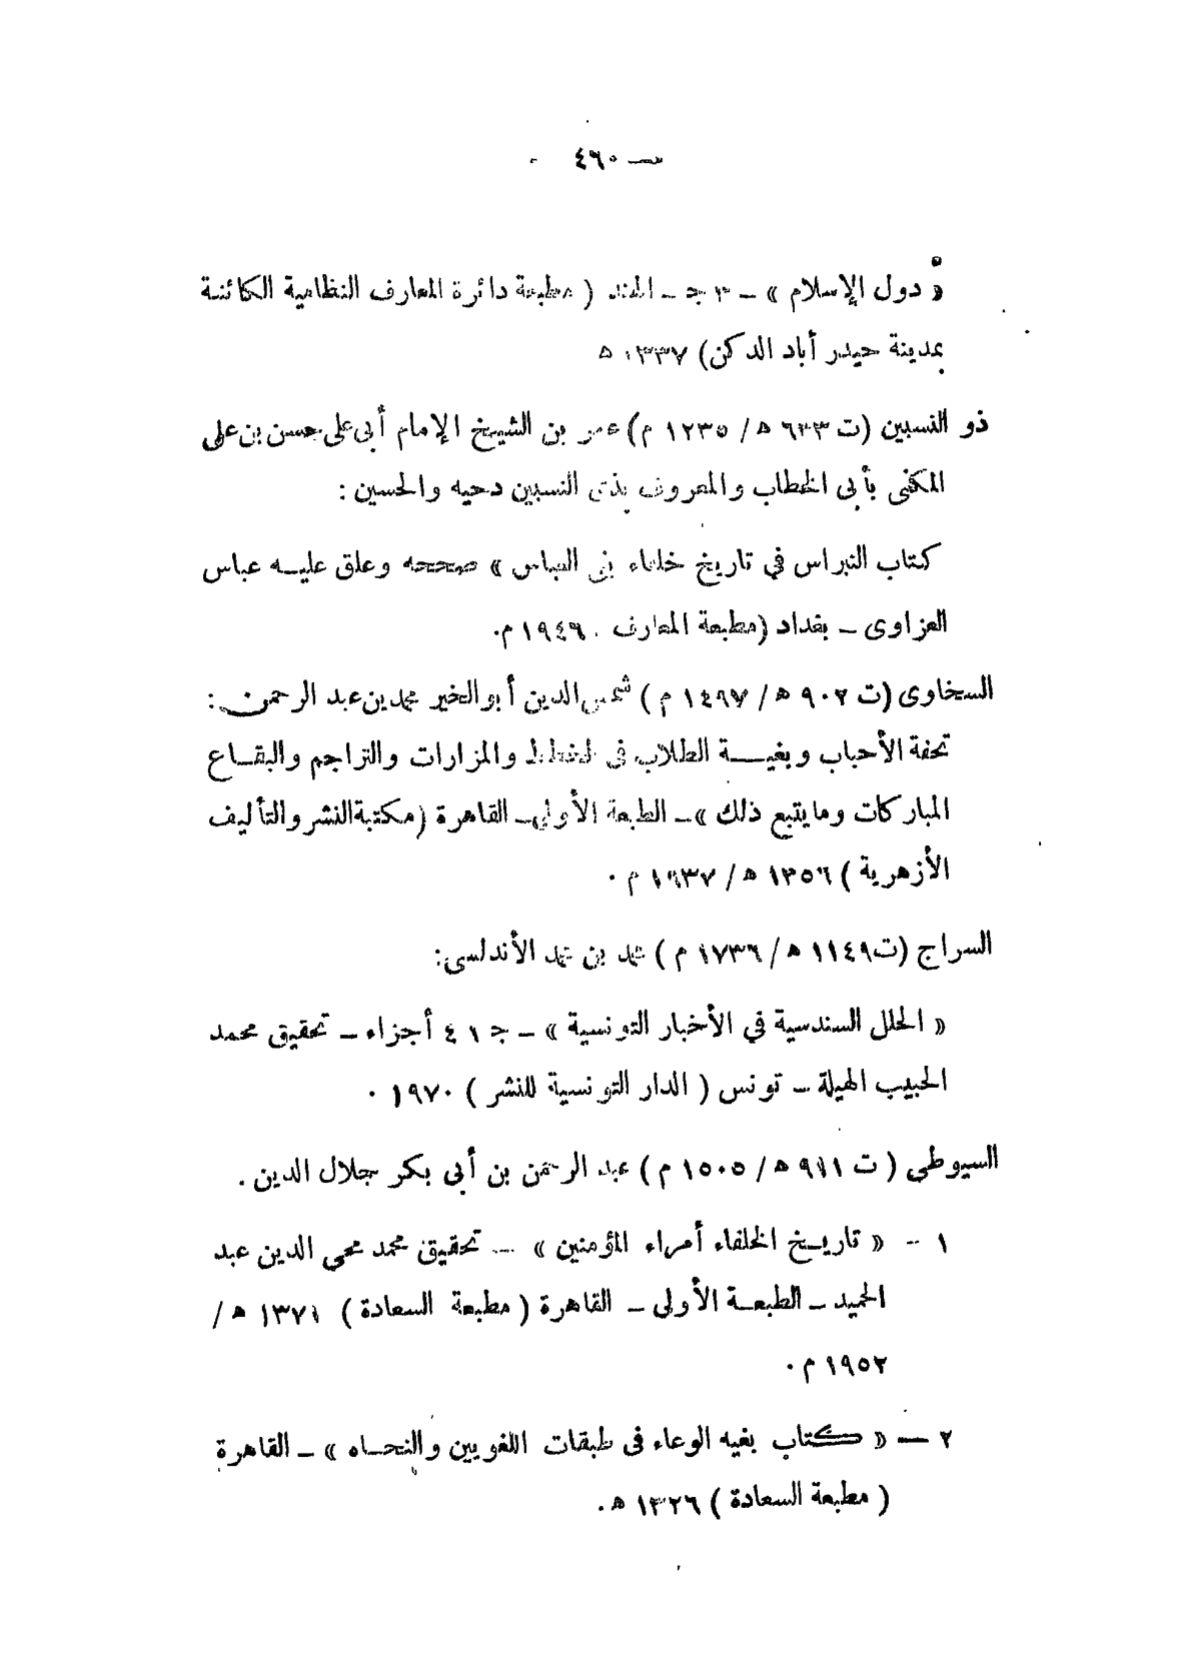 — ٤٦٠ -
« دول الإسلام » — ٢ ج — الهند ( مطبعة دائرة المعارف النظامية الكائنة
بمدينة حيدر أباد الدكن) ١٣٣٧ ه
ذو النسبين (ت ٦٣٣ ه / ١٢٣٥ م) عمر بن الشيخ الإمام أبى على حسن بن على
المكنى بأبى الخطاب والمعروف بذى النسبين دحيه والحسين :
كتاب النبراس في تاريخ خلفاء بنى العباس » صححه وعلق عليه عباس
العزاوى — بغداد (مطبعة المعارف . ١٩٤٦ م.
السخاوى (ت ٩٠٢ ه / ١٤٩٧ م ) شمس الدين أبو الخير محمد بن عبد الرحمن :
تحفة الأحباب وبغية الطلاب فى الخطط والمزارات والتراجم والبقاع
المباركات وما يتبع ذلك » — الطبعة الأولى — القاهرة (مكتبة النشر والتأليف
الأزهرية ) ١٣٥٦ ه / ١٩٣٧ م .
السراج (ت ١١٤٩ ه / ١٧٣٦ م ) محمد بن محمد الأندلسى:
« الحلل السندسية في الأخبار التونسية » — ج ١ ٤ أجزاء — تحقيق محمد
الحبيب الهيلة — تونس ( الدار التونسية للنشر ) ١٩٧٠ .
السيوطى ( ت ٩١١ ه / ١٥٠٥ م ) عبد الرحمن بن أبى بكر جلال الدين .
١ - « تاريخ الخلفاء أمراء المؤمنين » — تحقيق محمد محى الدين عبد
الحميد — الطبعة الأولى — القاهرة ( مطبعة السعادة ) ١٣٧١ ه /
١٩٥٢ م .
٢ — « كتاب بغيه الوعاء فى طبقات اللغويين والنحاه » — القاهرة
( مطبعة السعادة ) ١٣٢٦ ه .